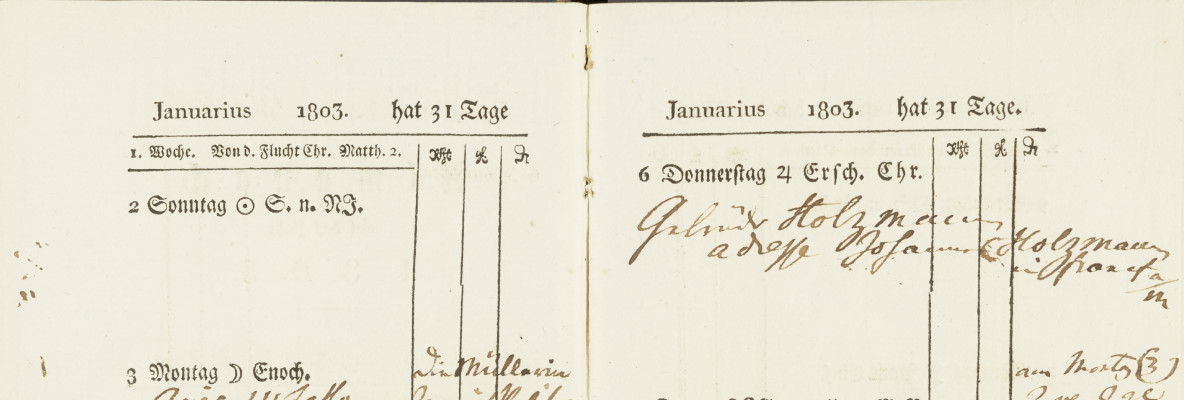 Januarius 1803. hat 31 Tage
1. Woche. Von d. Flucht Chr. Matth. 2.
2 Sonntag ☉ S. n. NJ.
3 Montag ☽ Enoch.
die Müllerin
Januarius 1803. hat 31 Tage.
6 Donnerstag ♃ Ersch. Chr.
Gebrüdr Holzmann
adresse Johann Holzmann
in francf a
m